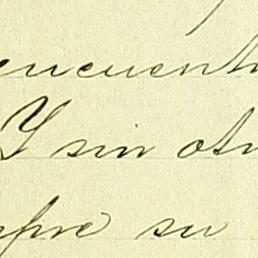 encuentr
Y sin otr
mpre su